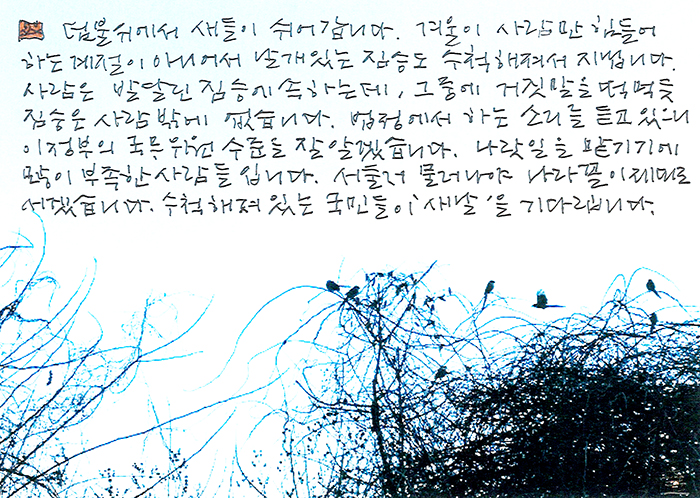 덤불위에서 새들이 쉬어갑니다. 겨울이 사람만 힘들어
하는계절이 아니어서 날개있는 짐승도 수척해져서 지냅니다.
사람은 발달린 짐승에 속하는데, 그중에 거짓말을 떡먹듯
짐승은 사람밖에 없습니다. 법정에서 하는 소리를 듣고 있으니
이정부의 국무위원 수준을 잘 알겠습니다. 나랏일을 맡기기에
많이 부족한 사람들입니다. 서둘러 물러나야 나라꼴이 제대로
서겠습니다. 수척해져 있는 국민들이 '새날'을 기다립니다.